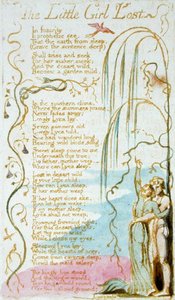 The Little Girl Lost
In futurity
I prophetic see,
That the earth from sleep,
(Grave the sentence deep)
Shall arise and seek
For her maker meek:
And the desart wild
Become a garden mild.
In the southern clime,
Where the summers prime
Never fades away;
Lovely Lyca lay.
Seven summers old
Lovely Lyca told,
She had wanderd long,
Hearing wild birds song.
Sweet sleep come to me
Underneath this tree;
Do father, mother weep,
Where can Lyca sleep.
Lost in desart wild
Is your little child.
How can Lyca sleep,
If her mother weep.
If her heart does ake,
Then let Lyca wake;
If my mother sleep,
Lyca shall not weep.
Frowning frowning night,
O'er this desart bright,
Let thy moon arise,
While I close my eyes.
Sleeping Lyca lay;
While the beasts of prey,
Come from caverns deep,
View'd the maid asleep
The kingly lion stood
And the virgin view'd,
Then he gambold round
O'er the hallowd ground: